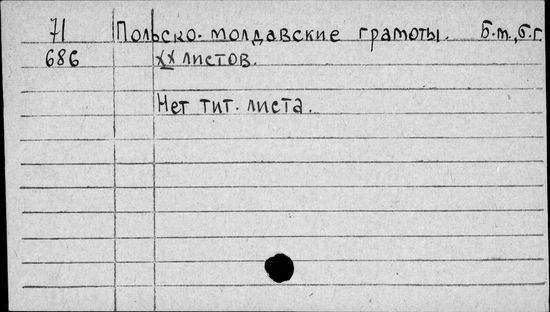 71 Польско-молдавские грамоты. Б.м., б.г.
686 XX листов.
Нет тит. листа.